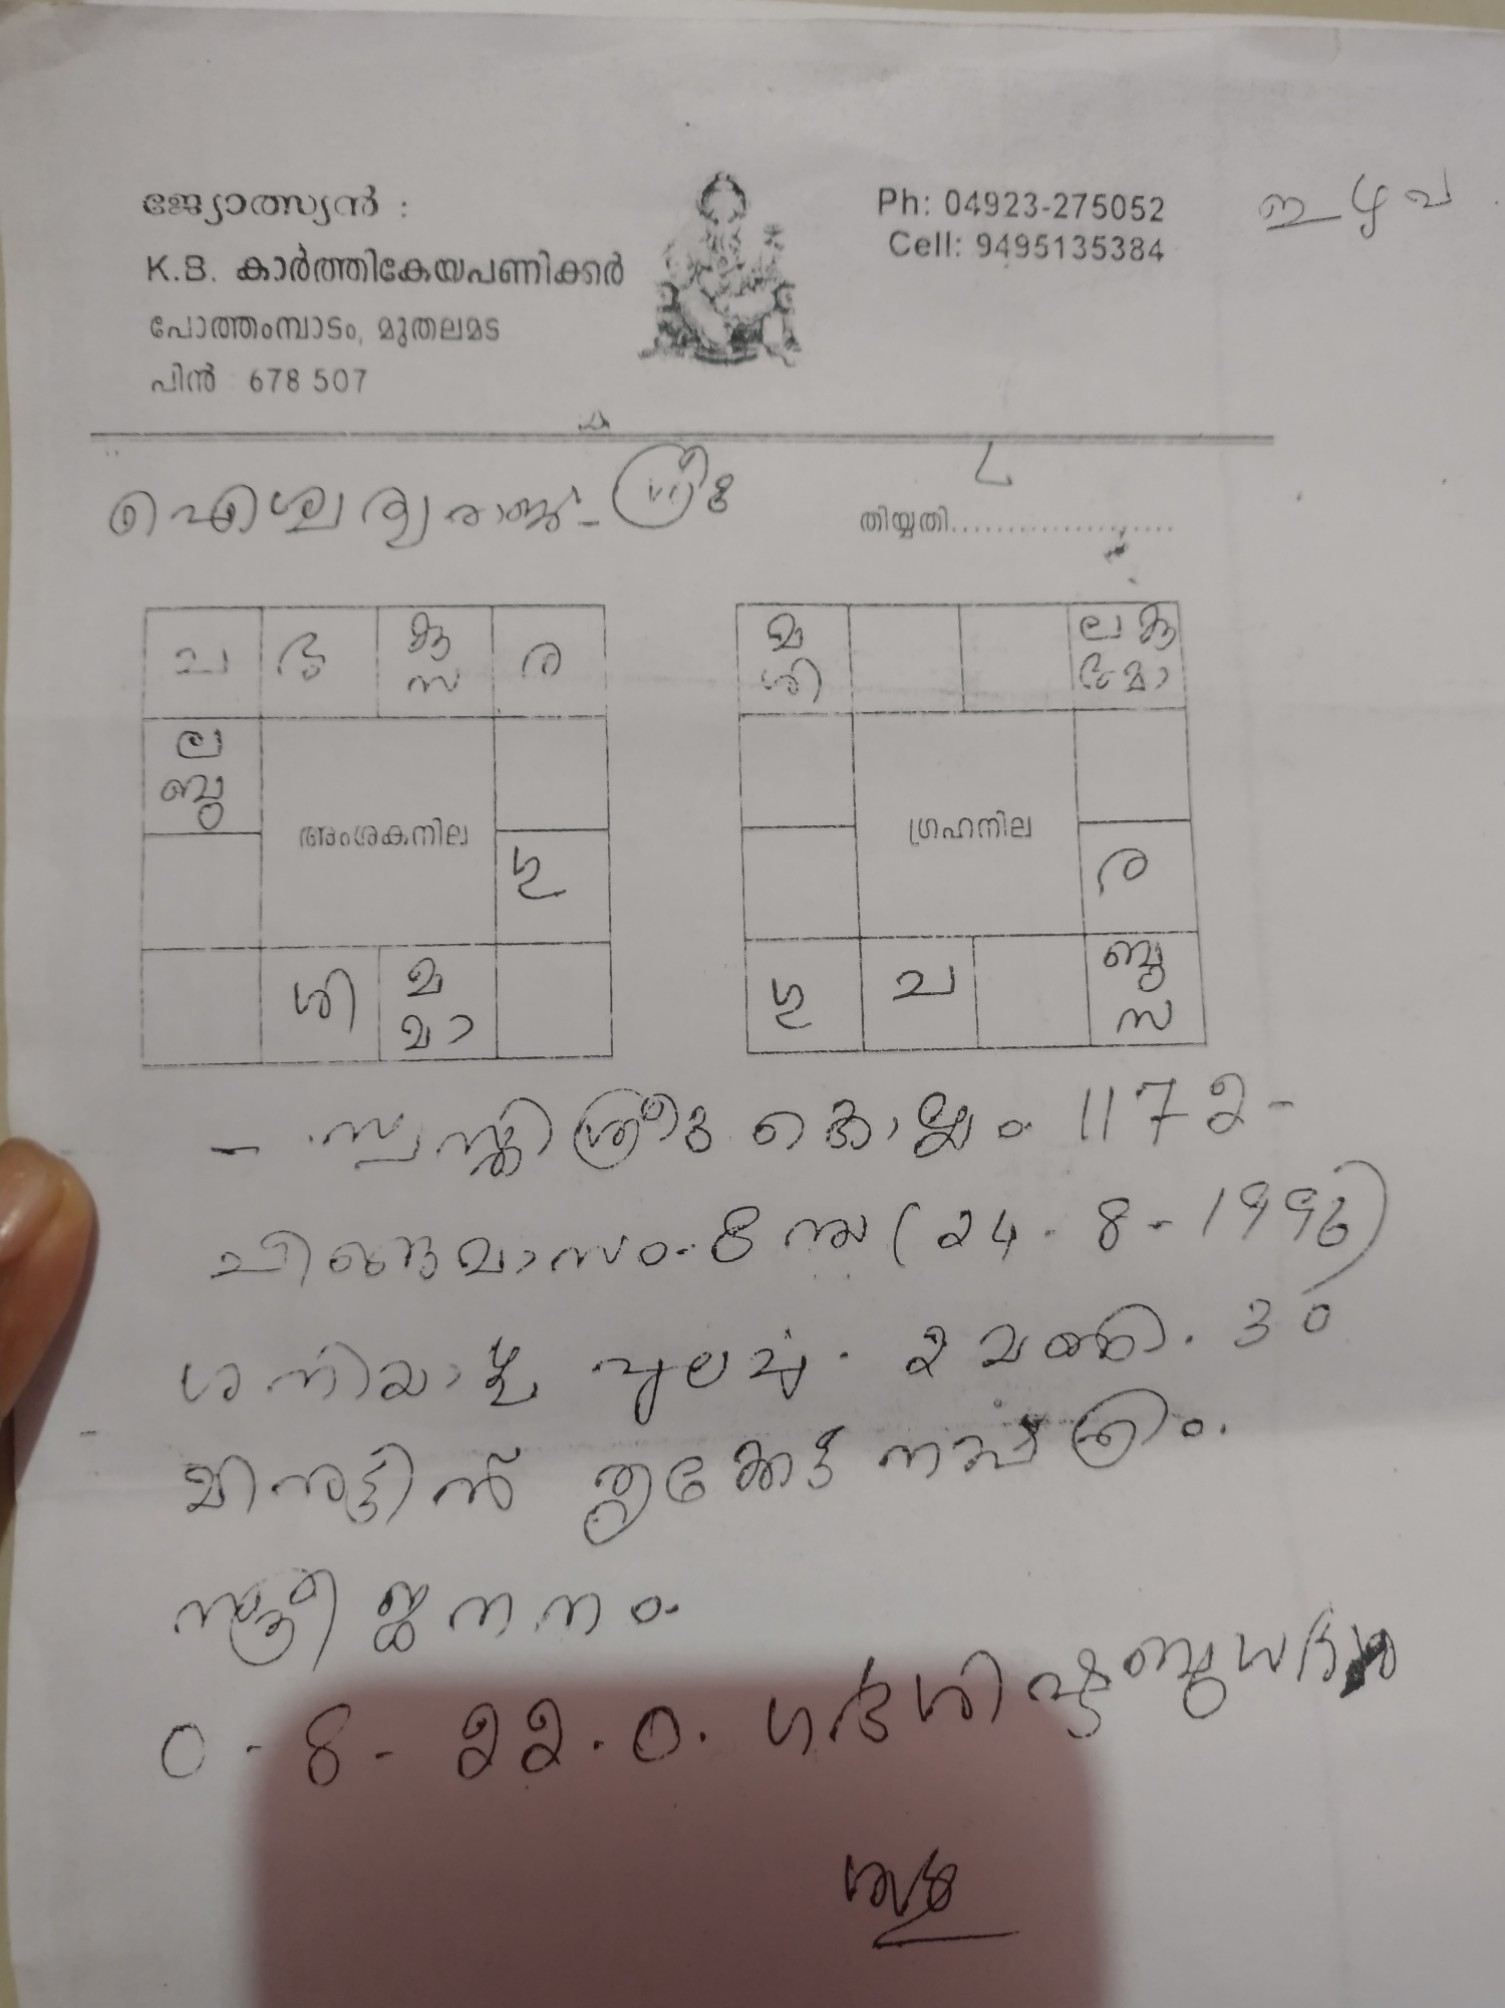 ജ്യോത്സ്യൻ :
K.B. കാർത്തികേയപണിക്കർ
പോത്തംമ്പാടം, മുതലമട
പിൻ : 678 507
Ph: 04923-275052
Cell: 9495135384
ഈഴവ
ഐശ്വര്യരാജ് - ശ്രീഃ
തിയ്യതി....................
ച ഭൃ കു സ ര
ല ബു
അംശകനില
ഗു
ശി മ മാ
മ ശി ല കു ഭൃ മാ
ഗ്രഹനില
ര
ഗു ച ബു സ
- സ്വസ്തിശ്രീഃ കൊല്ലം 1172 -
ചിങ്ങമാസം 8 നു (24 - 8 - 1996)
ശനിയാഴ്ച പുലർച്ച 2 മണി 30
മിനുട്ടിന് തൃക്കേട്ട നക്ഷത്രം.
സ്ത്രീ ജനനം.
0 - 8 - 22 . 0 . ഗർഭശിഷ്ടബുധദശ